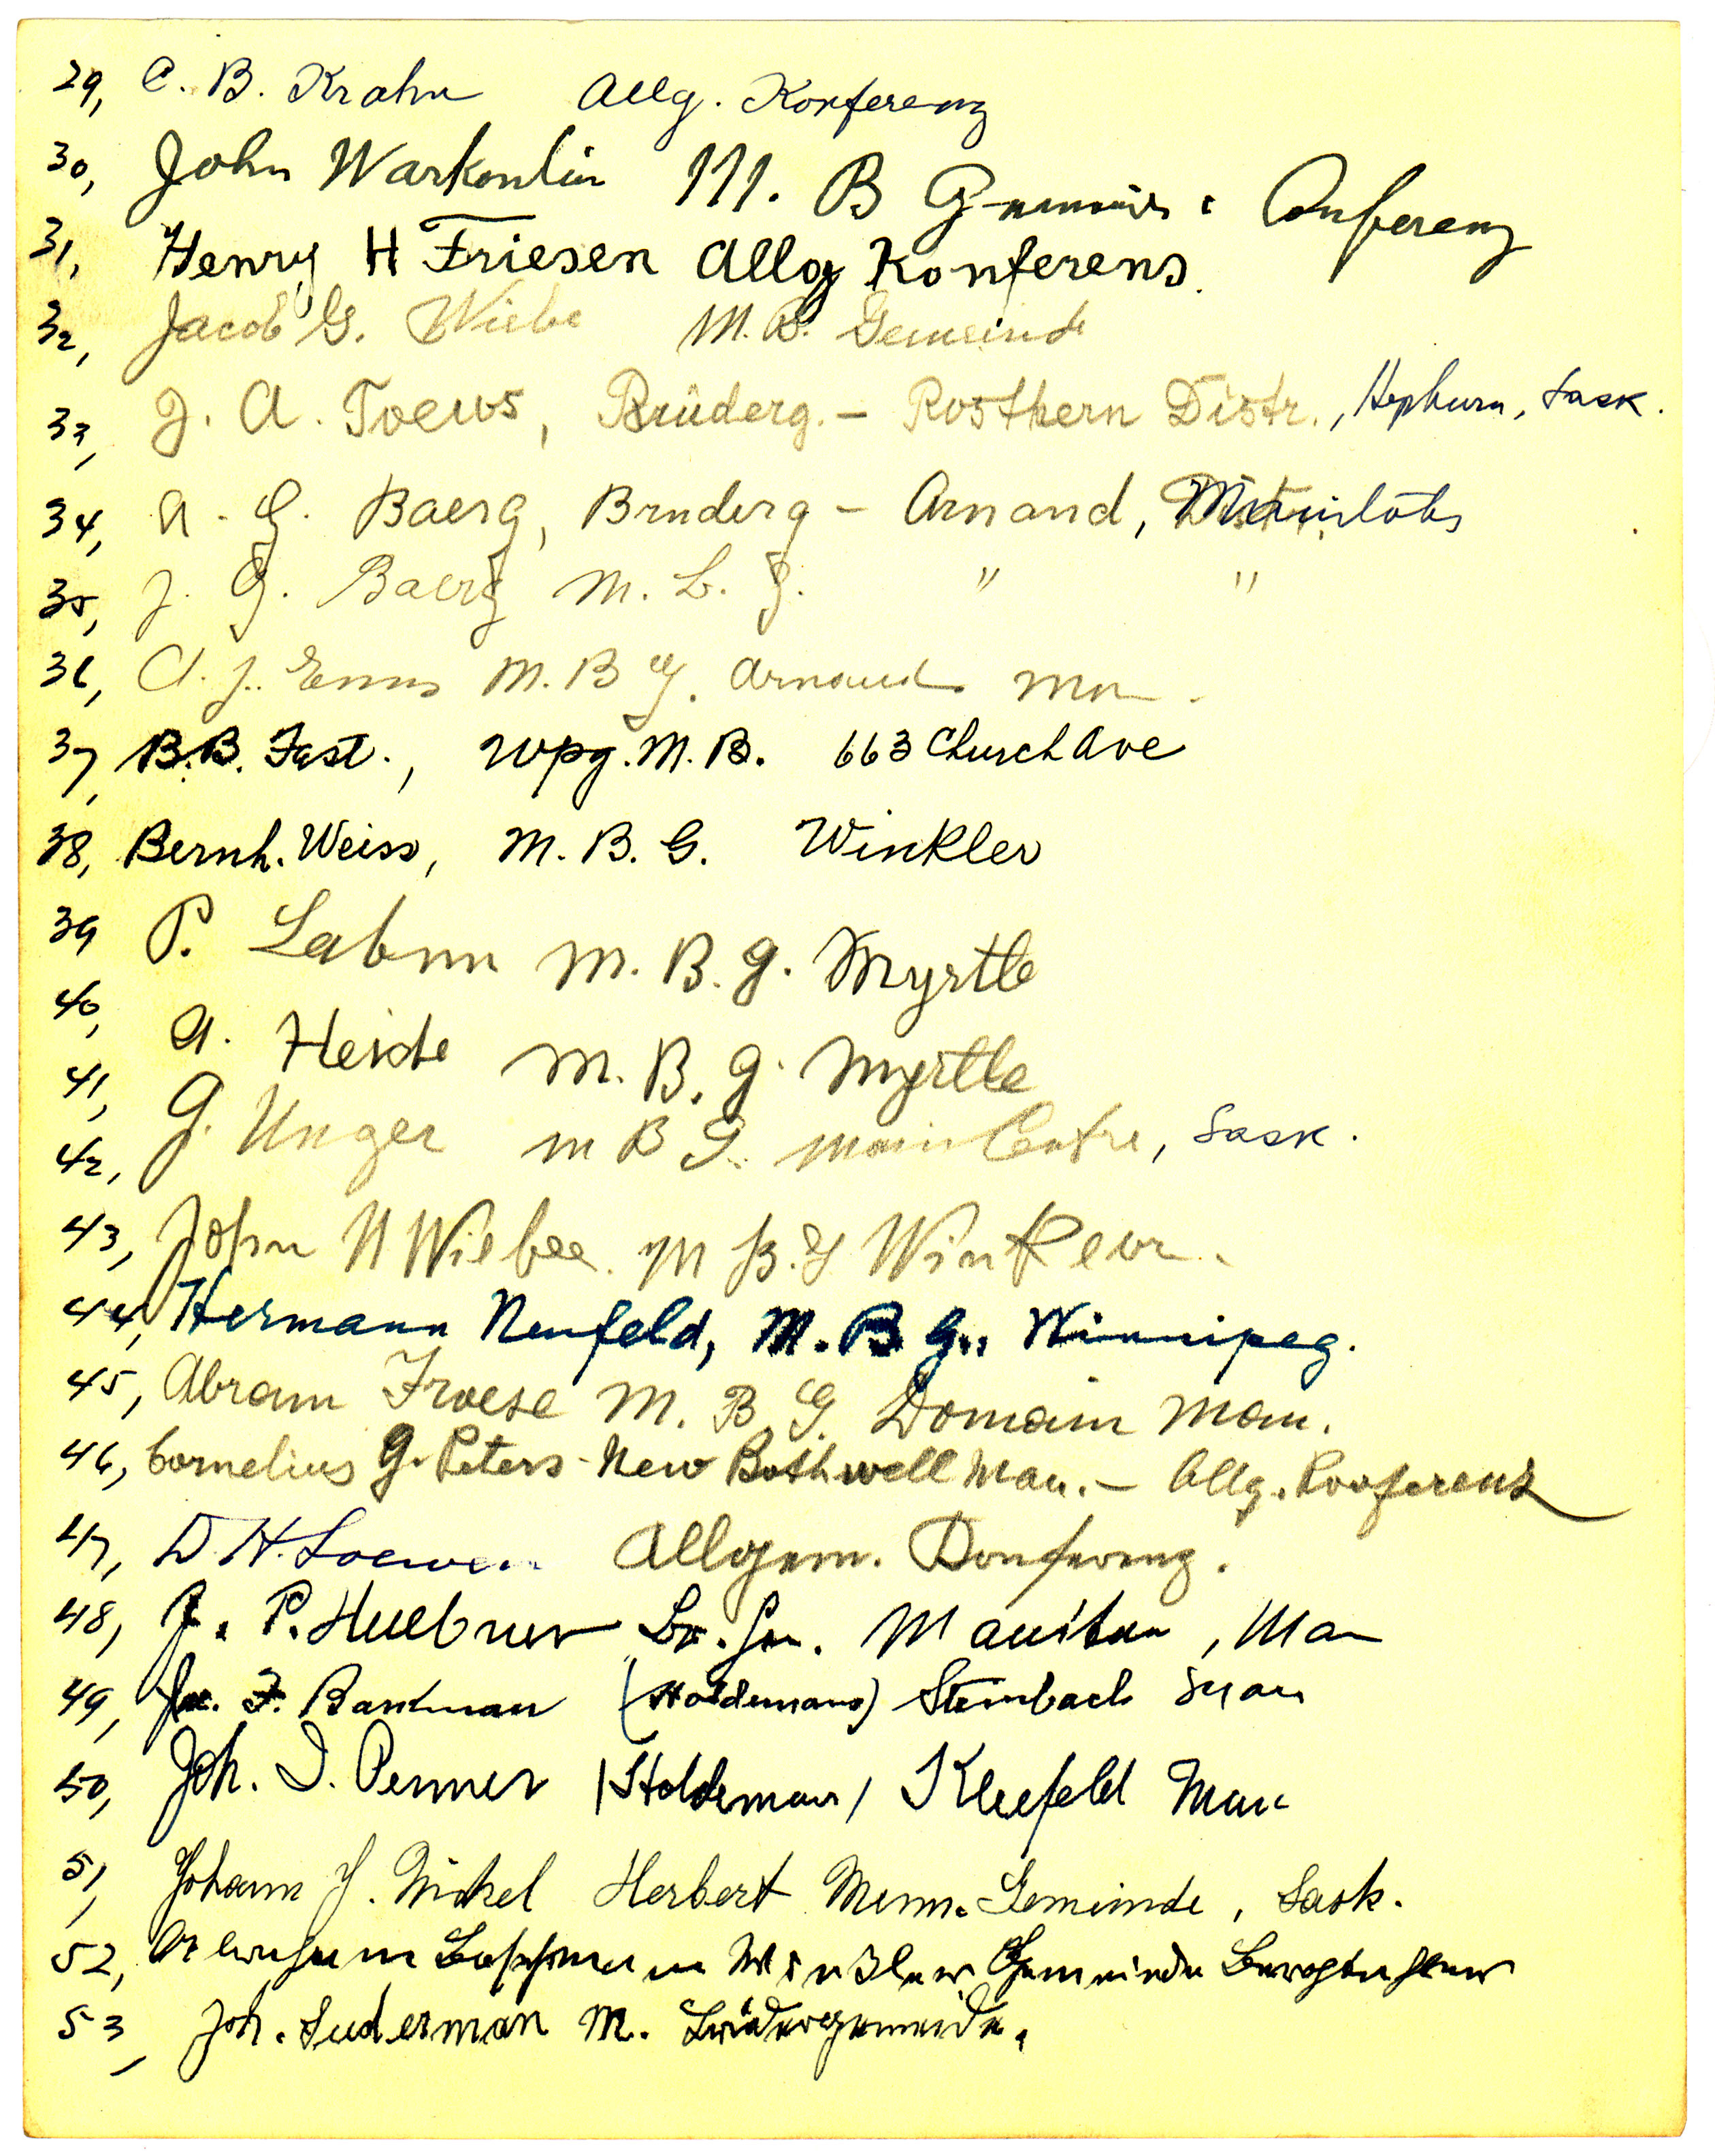 29, C. B. Krahn Allg. Konferenz
30, John Warkentin M. B Gemeinde Conferenz
31, Henry H Friesen Allg Konferens.
32, Jacob G. Wiebe M. B. Gemeinde
33, J. A. Toews, Brüderg. – Rosthern Distr., Hepburn, Sask.
34, A. G. Baerg, Bruderg – Arnaud, Manitoba
35, J. G. Baerg M. B. G. " "
36, A. J. Enns M. B G. Arnaud. Man.
37, B. B. Fast., Wpg. M. B. 663 Church Ave
38, Bernh. Weiss, M. B. G. Winkler
39 P. M. B. G. Myrtle
40, A. Heide M. B. G. Myrtle
41, G. Unger M B G. Main Centre, Sask.
42,
43, John N Wiebe. M B. G Winkler.
44, Hermann Neufeld, M. B G., Winnipeg.
45, Abram Froese M. B. G. Domain Man.
46, Cornelius G. Peters - New Bothwell Man. – Allg. Konferenz
47, D. H. Loewen Allgem. Konferenz.
48, J. P. Huebner Br. Gm. Manitou, Man
49, F. Bartman (Holdemans) Steinbach Man
50, Joh. I. Penner /Holdeman/ Kleefeld Man
51, Johann J. Nickel Herbert Menn. Gemeinde, Sask.
52, Winkler Gemeinde Bergthaler
53, Joh. Suderman M. Brüdergemeinde.